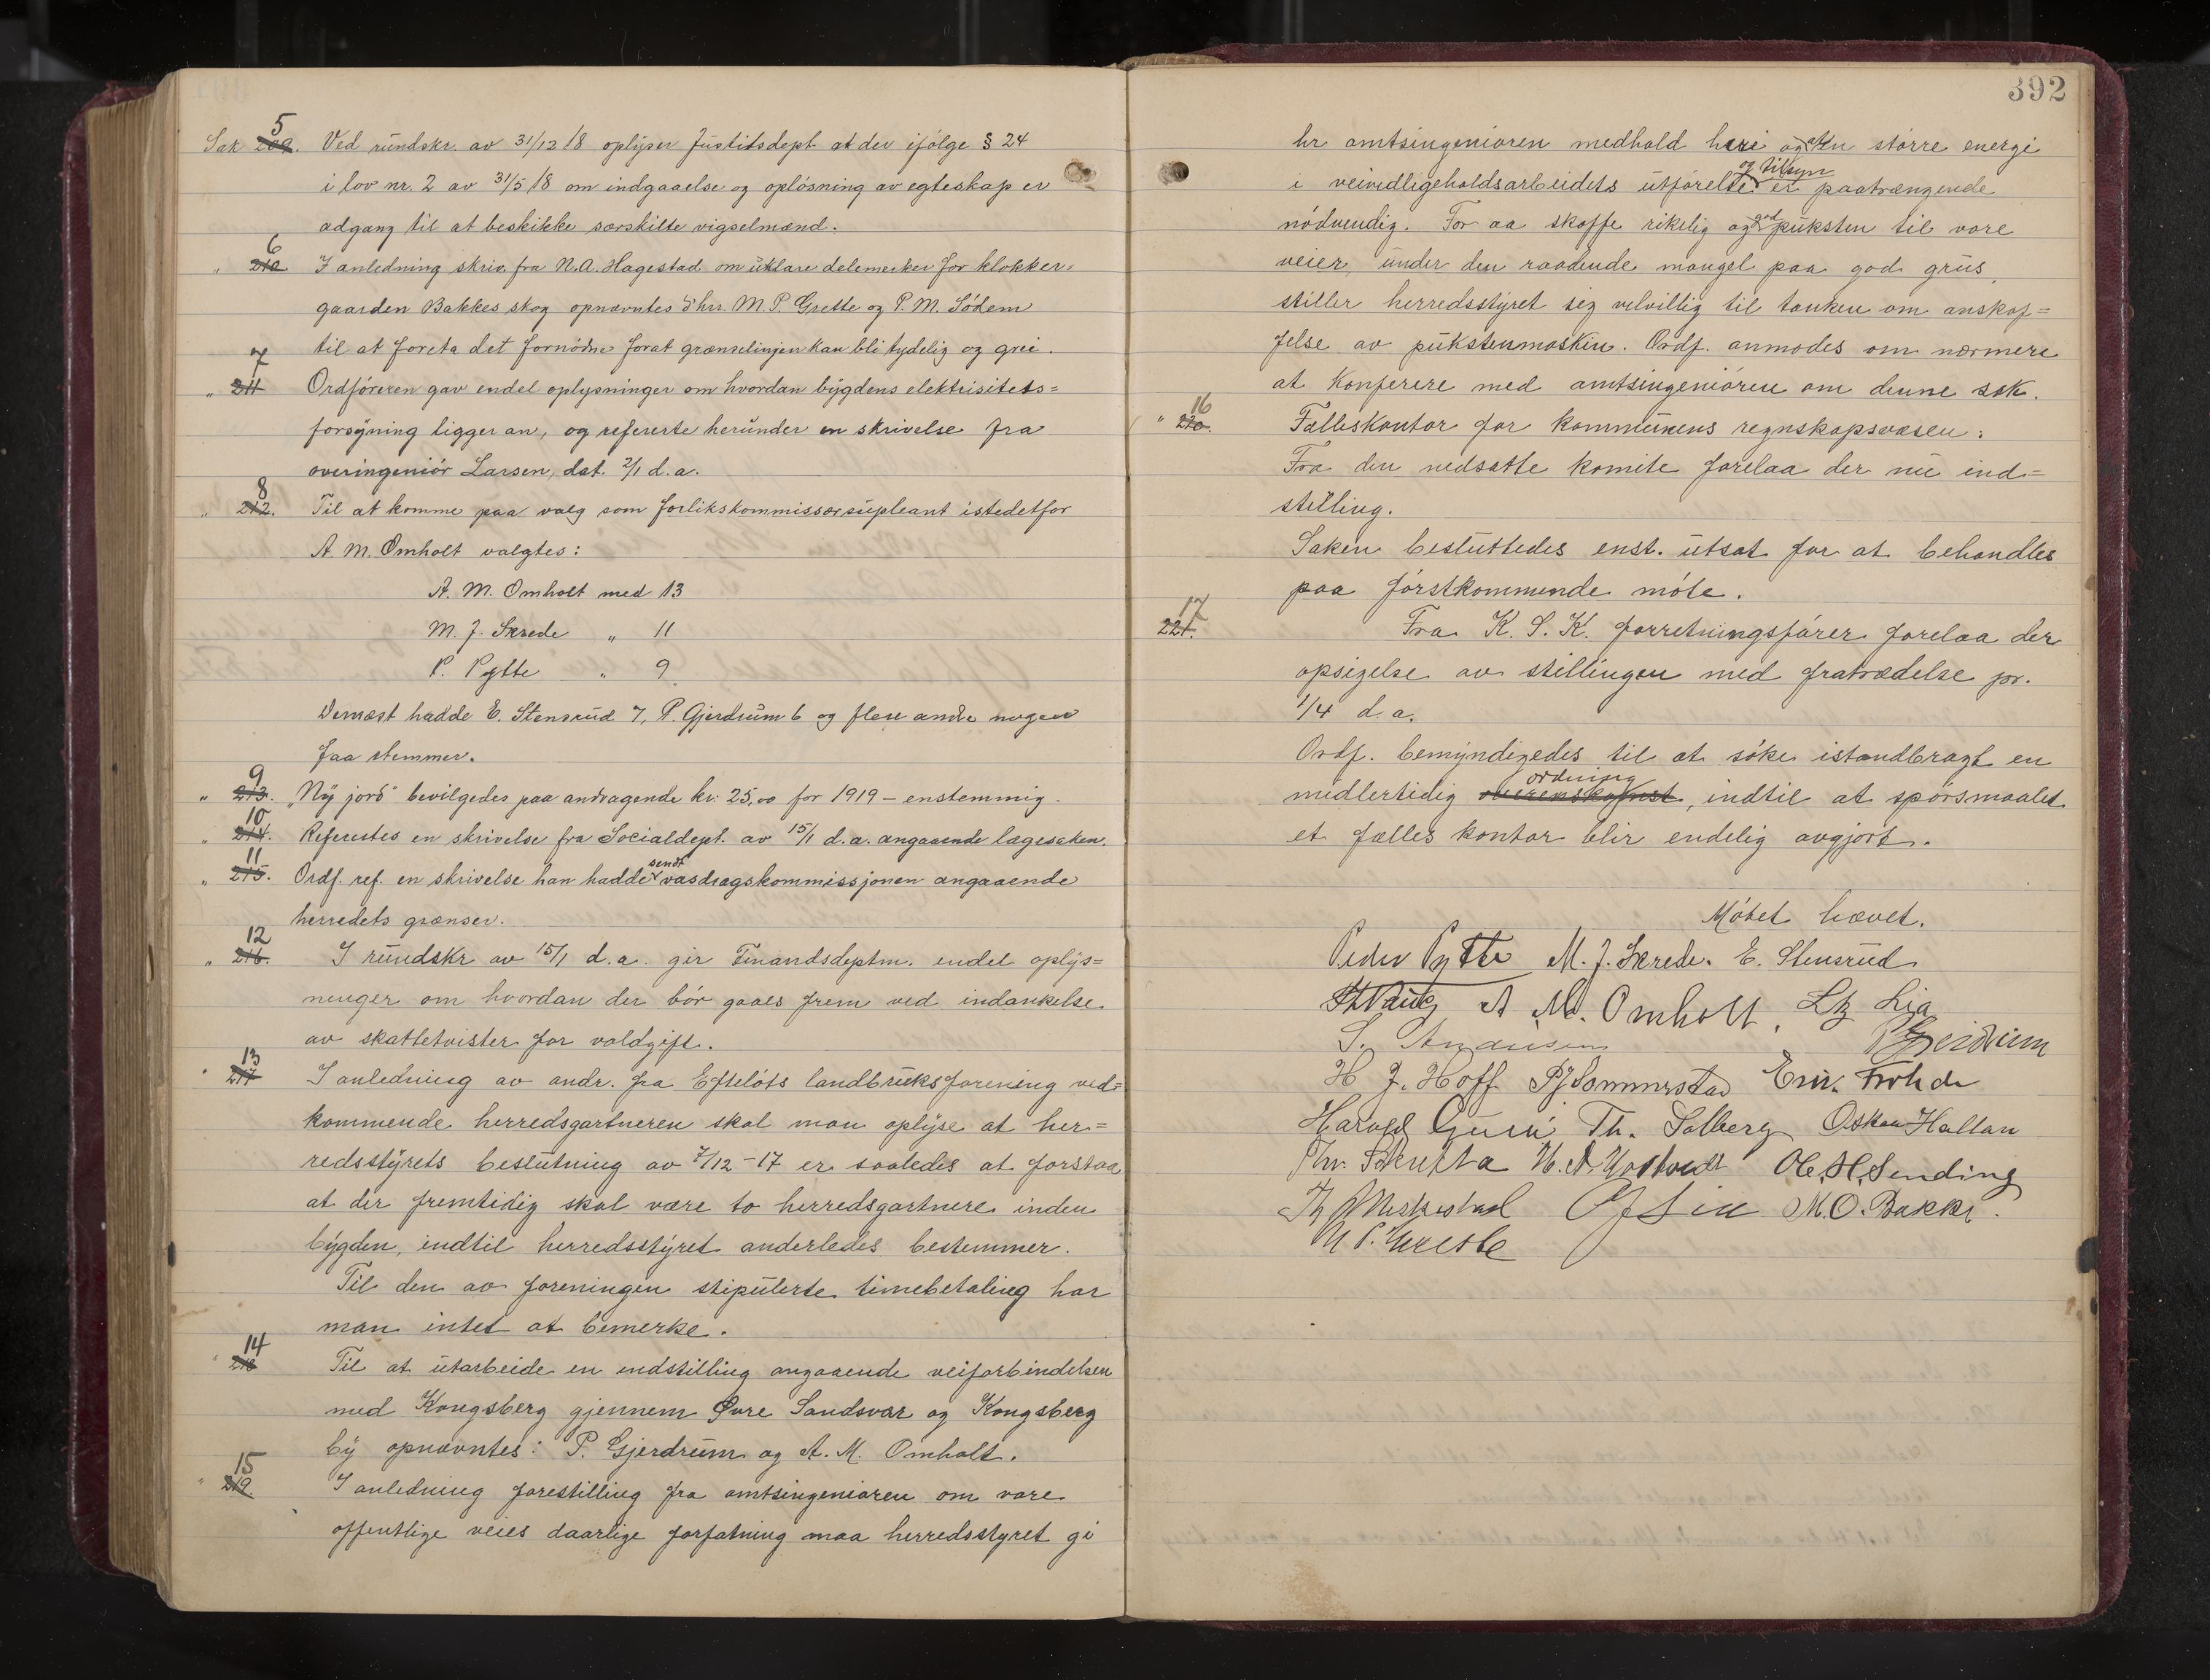 Sak 5 209. Ved rundskr. av 31/12 18 oplyser Justitsdept. at der ifølge § 24
i lov nr. 2 av 31/5 18 om indgaaelse og opløsning av egteskap er
adgang til at beskikke særskilte vigselmænd.
" 6 210 I anledning skriv. fra N.A. Hagestad om uklare delemerker for klokker-
gaarden Bakkes skog opnævntes hrr. M.P. Grette og P.M. Sødem
til at foreta det fornødne forat grænselinjen kan bli tydelig og grei.
" 7 211 Ordføreren gav endel oplysninger om hvordan bygdens elektrisitets=
forsyning ligger an, og refererte herunder en skrivelse fra
overingeniør Larsen, dat. 2/1 d.a.
" 8 212. Til at komme paa valg som forlikskommissærsupleant istedetfor
A. M. Omholt valgtes:
A. M. Omholt med 13
M. J. Skrede " 11
P. Pytte " 9
Dernæst hadde E. Stensrud 7, P. Gjerdrum 6 og flere andre nogen
faa stemmer.
" 9 213. "Ny jord" bevilgedes paa andragende kr. 25,00 for 1919 – enstemmig.
" 10 214. Refereretes en skrivelse fra Socialdept. av 15/1 d.a. angaaende lægesaken.
" 11 215. Ordf. ref. en skrivelse han hadde sendt vasdragskommissjonen angaaende
herredets grænser.
" 12 216. I rundskr av 15/1 d.a. gir Finansdeptm. endel oplys=
ninger om hvordan der bør gaaes frem ved indankelse
av skattetvister for voldgift.
" 13 217 I anledning av andr. fra Efteløts landbruksforening ved=
kommende herredsgartneren skal man oplyse at her=
redsstyrets beslutning av 7/12–17 er saaledes at forstaa
at der fremtidig skal være to herredsgartnere inden
bygden, indtil herredsstyret anderledes bestemmer.
Til den av foreningen stipulerte timebetaling har
man intet at bemerke.
" 14 218 Til at utarbeide en indstilling angaaende veiforbindelsen
med Kongsberg gjennem Øvre Sandsvær og Kongsberg
by opnævntes: P. Gjerdrum og A. M. Omholt.
" 15 219. I anledning forestilling fra amtsingeniøren om vore
offentlige veies daarlige forfatning maa herredsstyret gi
392
hr amtsingeniøren medhold heri og at en større energi
i veivedligeholdsarbeidets utførelse og tilsyn er paatrængende
nødvendig. For aa skaffe rikelig og god puksten til vore
veier, under den raadende mangel paa god grus,
stiller herredsstyret sig velvillig til tanken om anskaf=
felse av pukstenmaskin. Ordf. anmodes om nærmere
at konferere med amtsingeniøren om denne sak.
" 16 220. Fælleskontor for kommunens regnskapsvæsen:
Fra den nedsatte komite forelaa der nu ind=
stilling.
Saken besluttedes enst. utsat for at behandles
paa førstkommende møte.
17 221. Fra K. S. K. forretningsfører forelaa der
opsigelse av stillingen med fratrædelse pr.
1/4 d.a.
Ordf. bemyndigedes til at søke istandbragt en
midlertidig overenskomst ordning, indtil at spørsmaalet
et fælles kontor blir endelig avgjort.
Møtet hævet.
Peder Pytte M. J. Skrede. E. Stensrud
A M. Omholt, Lia
S. P Gjerdrum
H J. Hoff PJ Sommerstad
Harald Th. Solberg Oskar Hallan
Chr. Ole H. Sending
M.O. Bakke.
M P. Grette